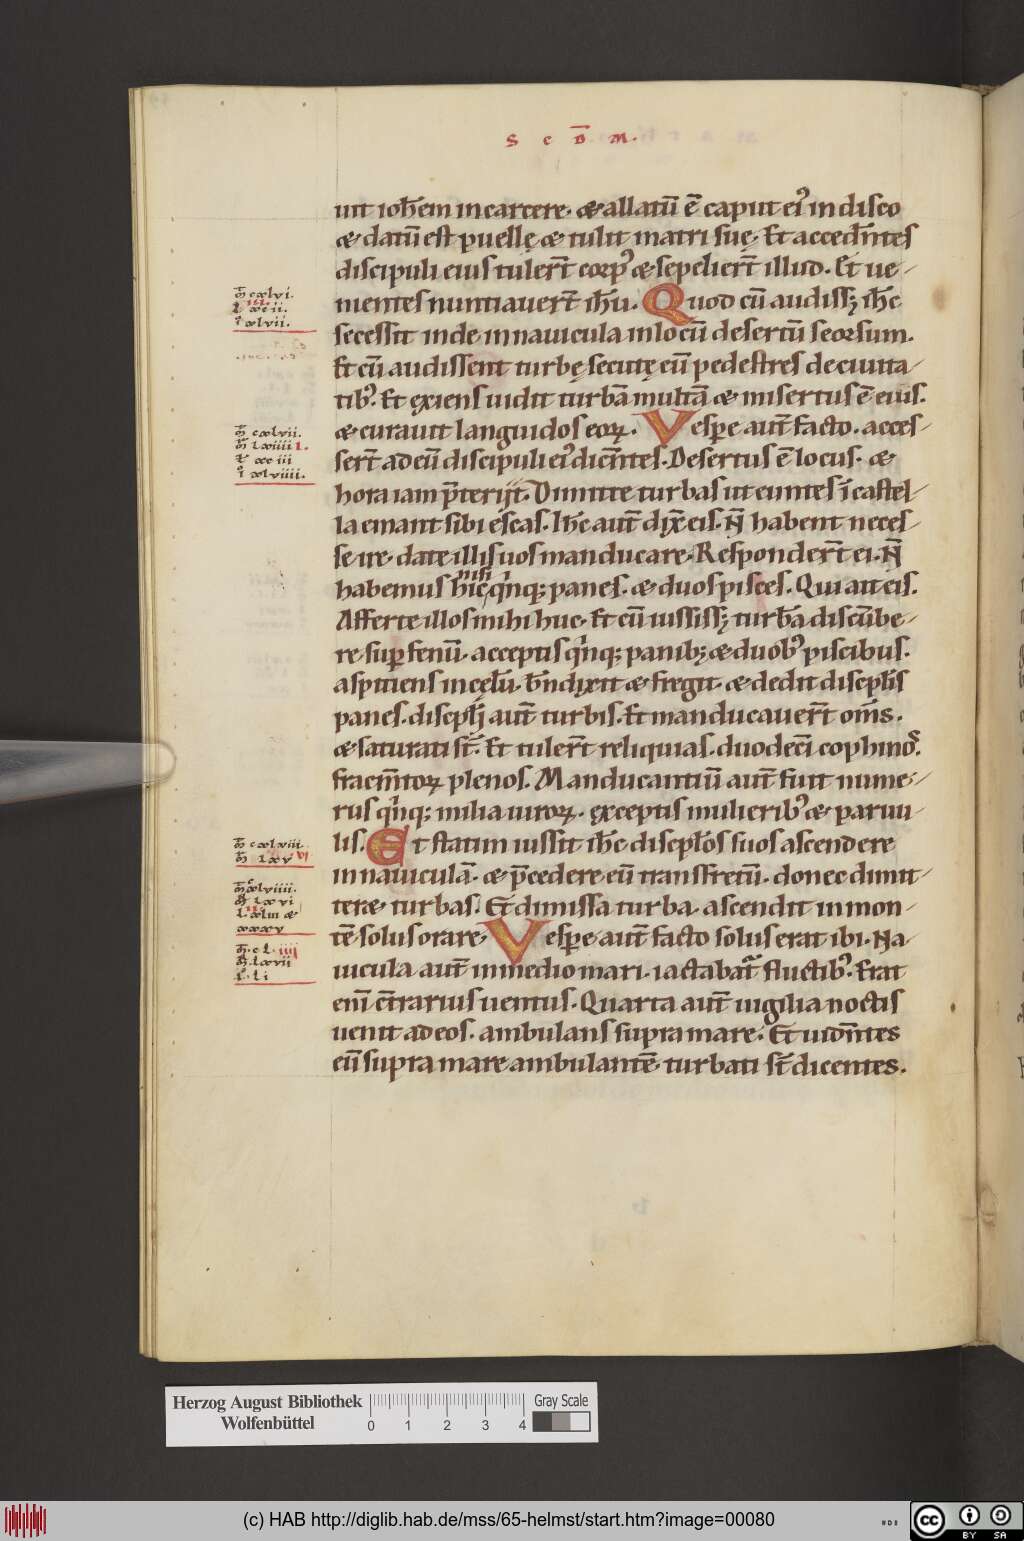 S C D̅ M.
uit ioh̅em in carcere. & allatū ē caput ei᾽ in disco
& datū est puellę & tulit matri suę. Et acced̅ntes
discipuli eius tuler̅t corp᾽ & sepelier̅t illud. Et ue-
nientes nuntiauer̅t ih̅u. Quod cū audiss& ih̅c
secessit inde in nauicula in locū desertū seorsum.
Et cū audissent turbę secutę eū pedestres de ciuita-
tib᾽. Et exiens uidit turbā multā & misertus ē eius.
& curauit languidos eoꝝ. Vesꝑe aut̅ facto. acces-
ser̅t ad eū discipuli ei᾽ dic̅ntes. Desertus ē locus. &
hora iam p̅terijt. Dimitte turbas ut euntes ī castel-
la emant sibi escas. Ih̅c aut̅ dix̅ eis. N̅ habent neces-
se ire. date illis uos manducare. Responder̅t ei. N̅
habemus hic nisi qⁱnq; panes. & duos pisces. Qui ait eis.
Afferte illos mihi huc. Et cū iussiss& turbā discūbe-
re suꝑ fenū. acceptis qⁱnq; panib; & duob᾽ piscibus.
aspitiens in cęlū. b̅ndixit & fregit. & dedit discipl̅is
panes. discipl̅j aut̅ turbis. Et manducauer̅t om̅s.
& saturati st̅. Et tuler̅t reliquias. duodecī cophinos.
fracm̅toꝝ plenos. Manducantiū aut̅ fuit nume-
rus qⁱnq; milia uiroꝝ. exceptis mulierib᾽ & paruu-
lis. Et statim iussit ih̅c discipl̅os suos ascendere
in nauiculā. & p̅cedere eū trans fretū. donec dimit-
ter& turbas. Et dimissa turba. ascendit in mon-
tē solus orare. Vesꝑe aut̅ facto solus erat ibi. Na-
uicula aut̅ in medio mari. iactabat᷑ fluctib᾽. Erat
enī c̅trarius uentus. Quarta aut̅ uigilia noctis
uenit ad eos. ambulans supra mare. Et uid̅ntes
eū supra mare ambulantē. turbati st̅ dicentes.
m̅ cxlvi.
l xcii.
i̊ xlvii.
m̅ cxlvii.
m̅ lxiiii l.
l xciii
i̊ xlviiii.
m̅ cxlviii.
m̅ lxv vi
m̅ cxlviiii.
m̅ lxvi
xxxv
m̅. cl. iiii
m̅ lxvii
i̊. li
Herzog August Bibliothek
Wolfenbüttel
0 1 2 3 4
Gray Scale
(c) HAB http://diglib.hab.de/mss/65-helmst/start.htm?image=00080
cc BY SA